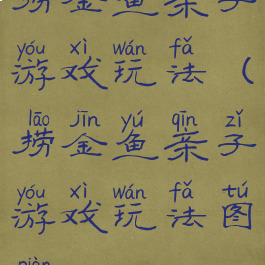 捞金鱼亲子
yóu xì wán fǎ
游戏玩法(
lāo jīn yú qīn zǐ
捞金鱼亲子
yóu xì wán fǎ tú
游戏玩法图
piàn